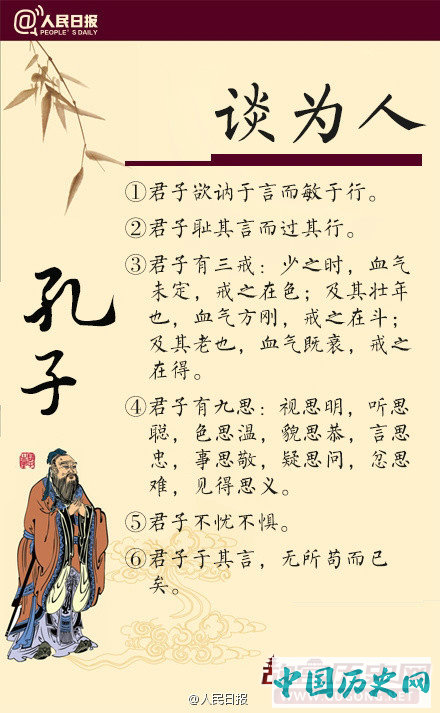 @人民日报
PEOPLE'S DAILY
谈为人
①君子欲讷于言而敏于行。
②君子耻其言而过其行。
③君子有三戒：少之时，血气
未定，戒之在色；及其壮年
也，血气方刚，戒之在斗；
及其老也，血气既衰，戒之
在得。
④君子有九思：视思明，听思
聪，色思温，貌思恭，言思
忠，事思敬，疑思问，忿思
难，见得思义。
⑤君子不忧不惧。
⑥君子于其言，无所苟而已
矣。
孔子
中国历史网
@人民日报